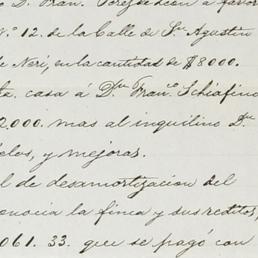 D. Fran. Torre se dió á favor
N.º 12. de la Calle de Sn. Agustin
de Neri, en la cantidad de $8000.
casa á Dn. Franº. Schiafino
2,000. mas al inquilino Dn.
y mejoras.
l de desamortizacion del
la finca y sus reditos,
061. 33. que se pagó con